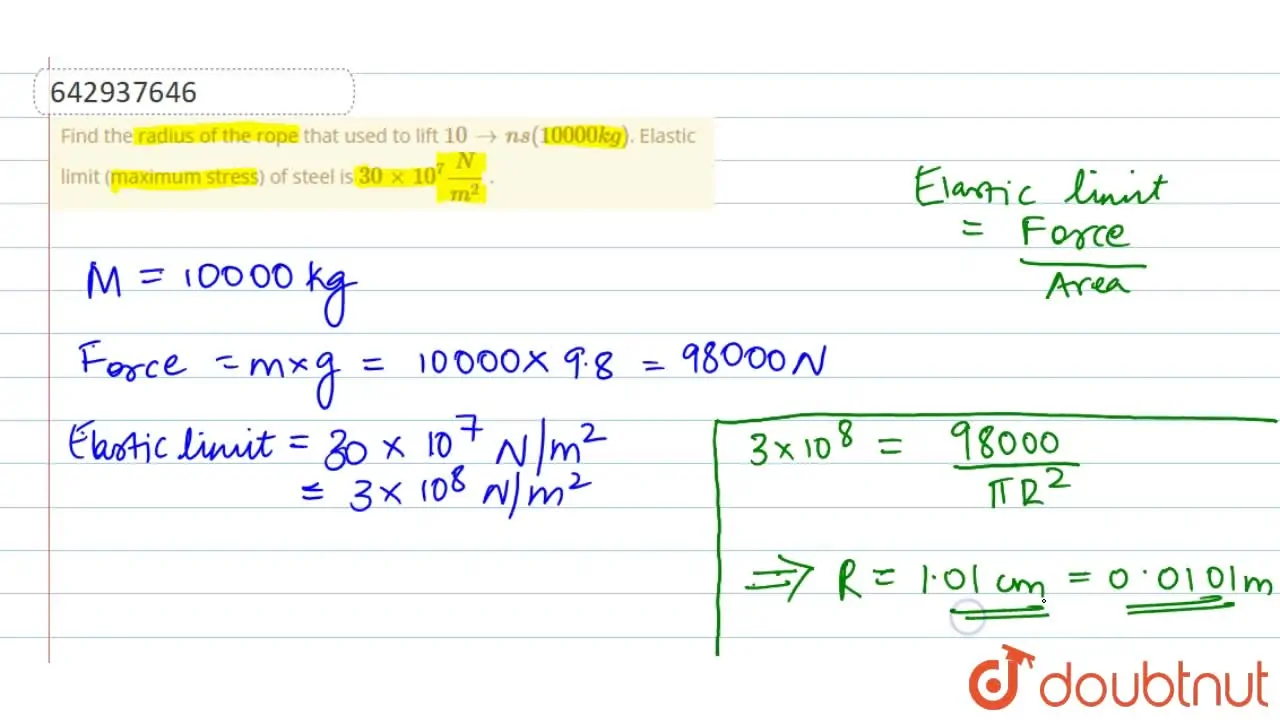 642937646
Find the radius of the rope that used to lift 10 → ns(10000kg). Elastic
limit (maximum stress) of steel is 30 × 10⁷ N/m².
Elastic limit
= Force/Area
M = 10000 kg
Force = m×g = 10000 × 9.8 = 98000 N
Elastic limit = 30 × 10⁷ N/m²
= 3 × 10⁸ N/m²
3 × 10⁸ = 98000/πR²
⇒ R = 1.01 cm = 0.0101 m
doubtnut